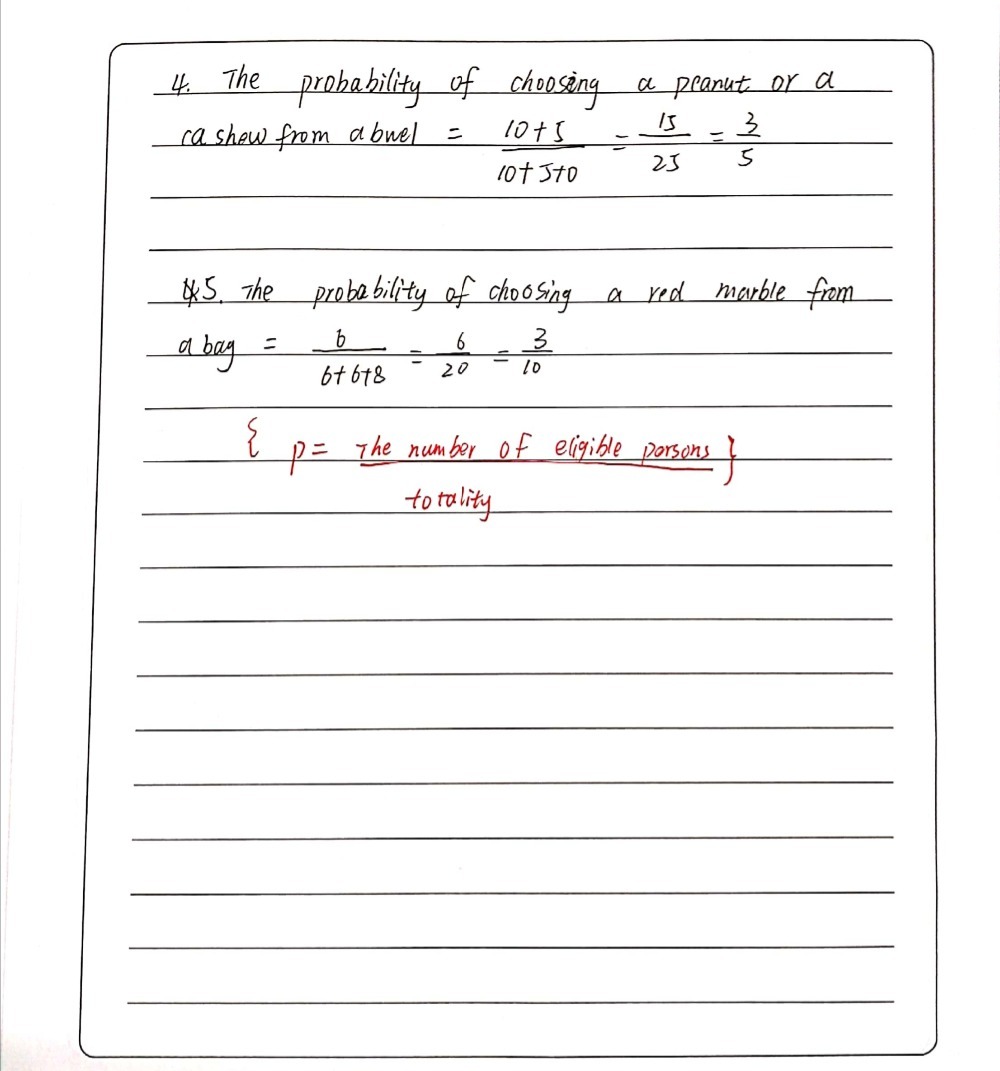 4. The probability of choosing a peanut or a
cashew from a bwel = 10+5 / 10+5+0 = 15 / 25 = 3 / 5
5. The probability of choosing a red marble from
a bag = 6 / 6+6+8 = 6 / 20 = 3 / 10
{ p = The number of eligible porsons / totality }